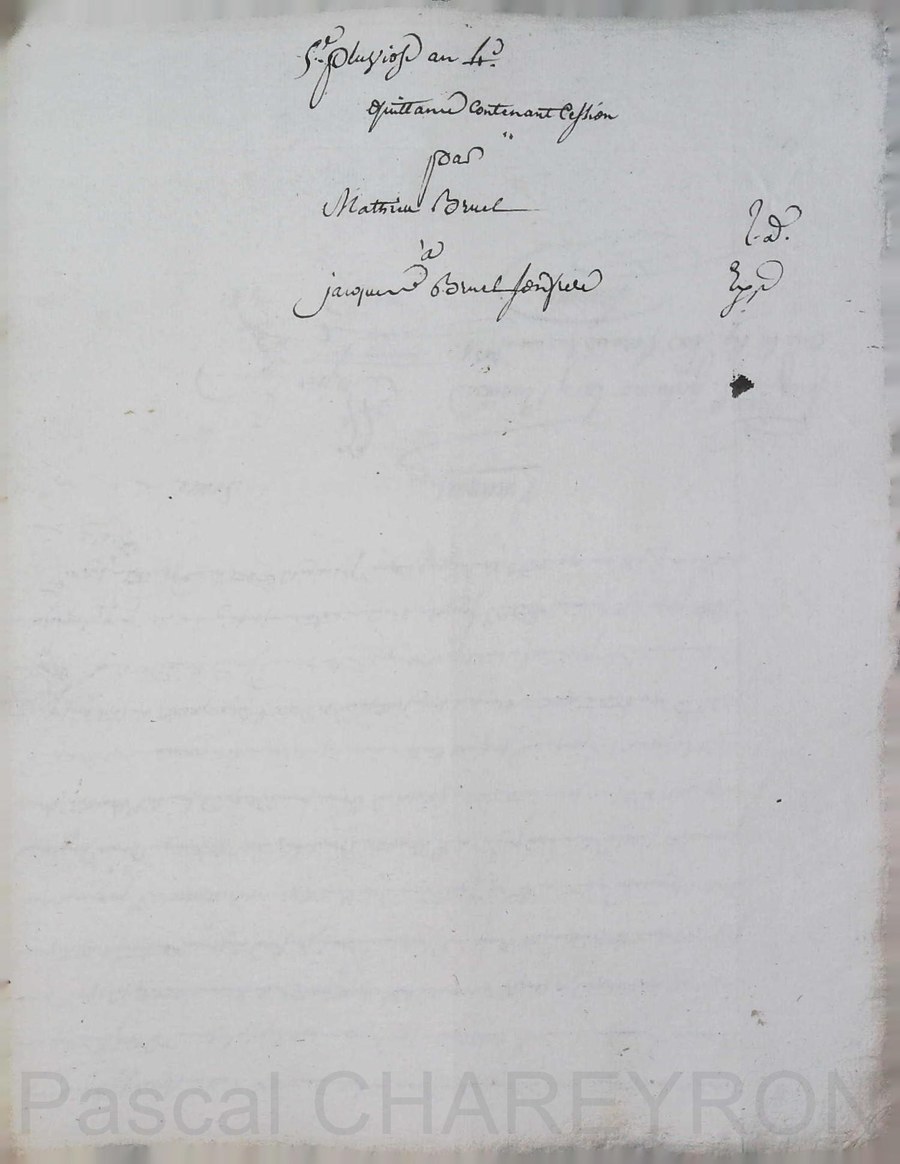 5e. pluviose an 4e.
quittance contenant Cession
par
Mathieu Bruel
à
jacques Bruel son frere
Exp.
Pascal CHAREYRON